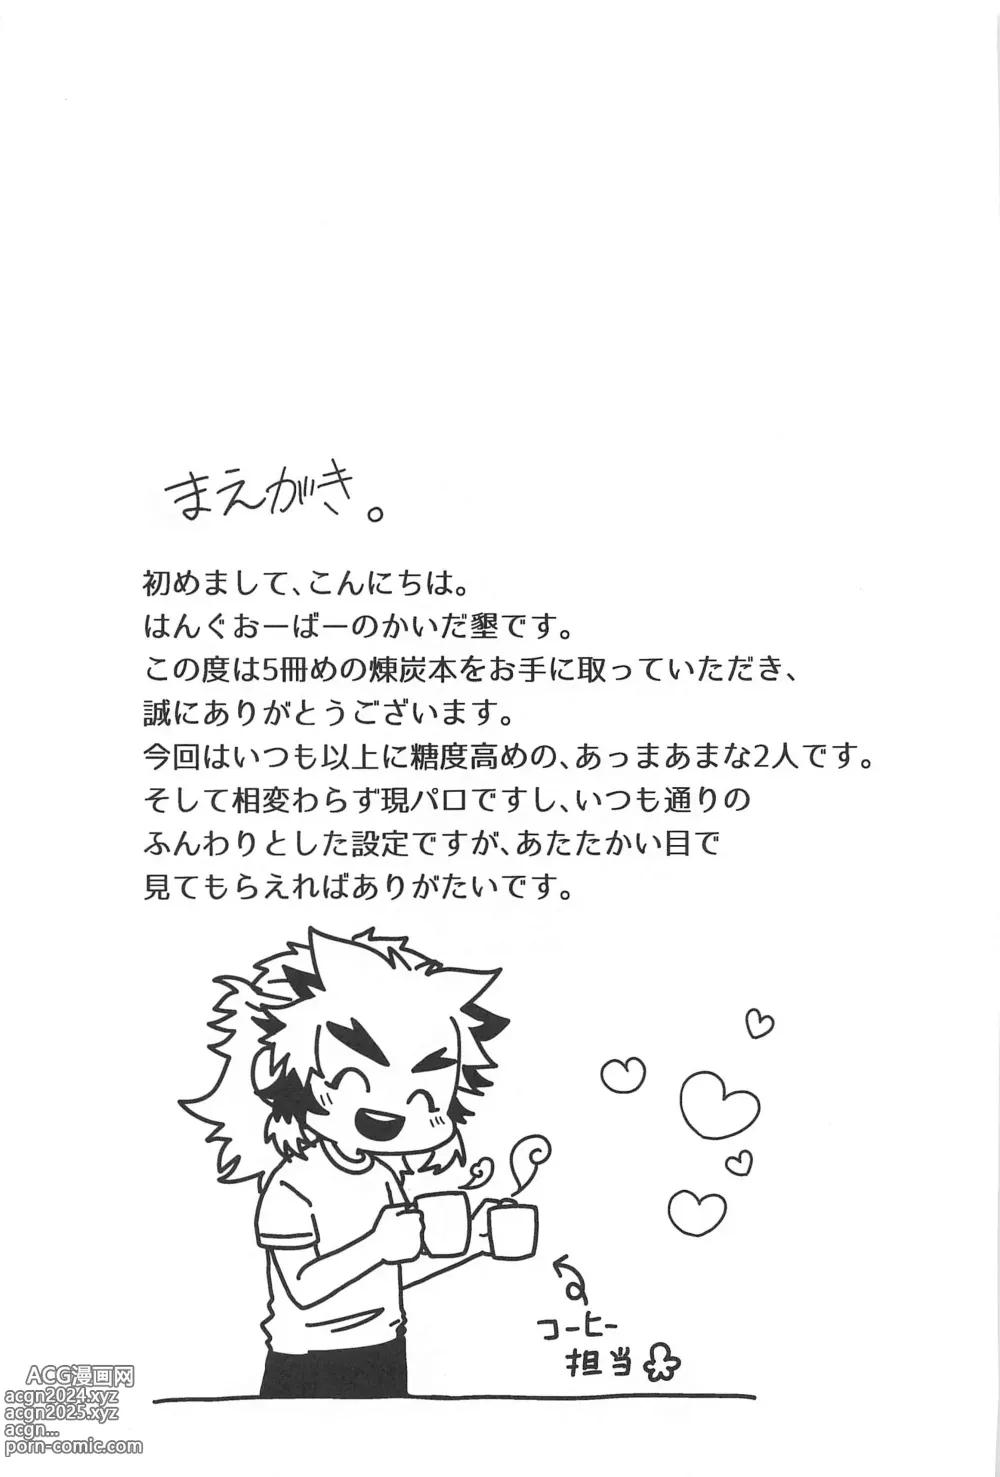 まえがき。
初めまして、こんにちは。
はんぐおーばーのかいだ墾です。
この度は5冊めの煉炭本をお手に取っていただき、
誠にありがとうございます。
今回はいつも以上に糖度高めの、あっまあまな2人です。
そして相変わらず現パロですし、いつも通りの
ふんわりとした設定ですが、あたたかい目で
見てもらえればありがたいです。
コーヒー
担当
ACG漫画网
acgn2024.xyz
acgn2025.xyz
acgn...
porn-comic.com